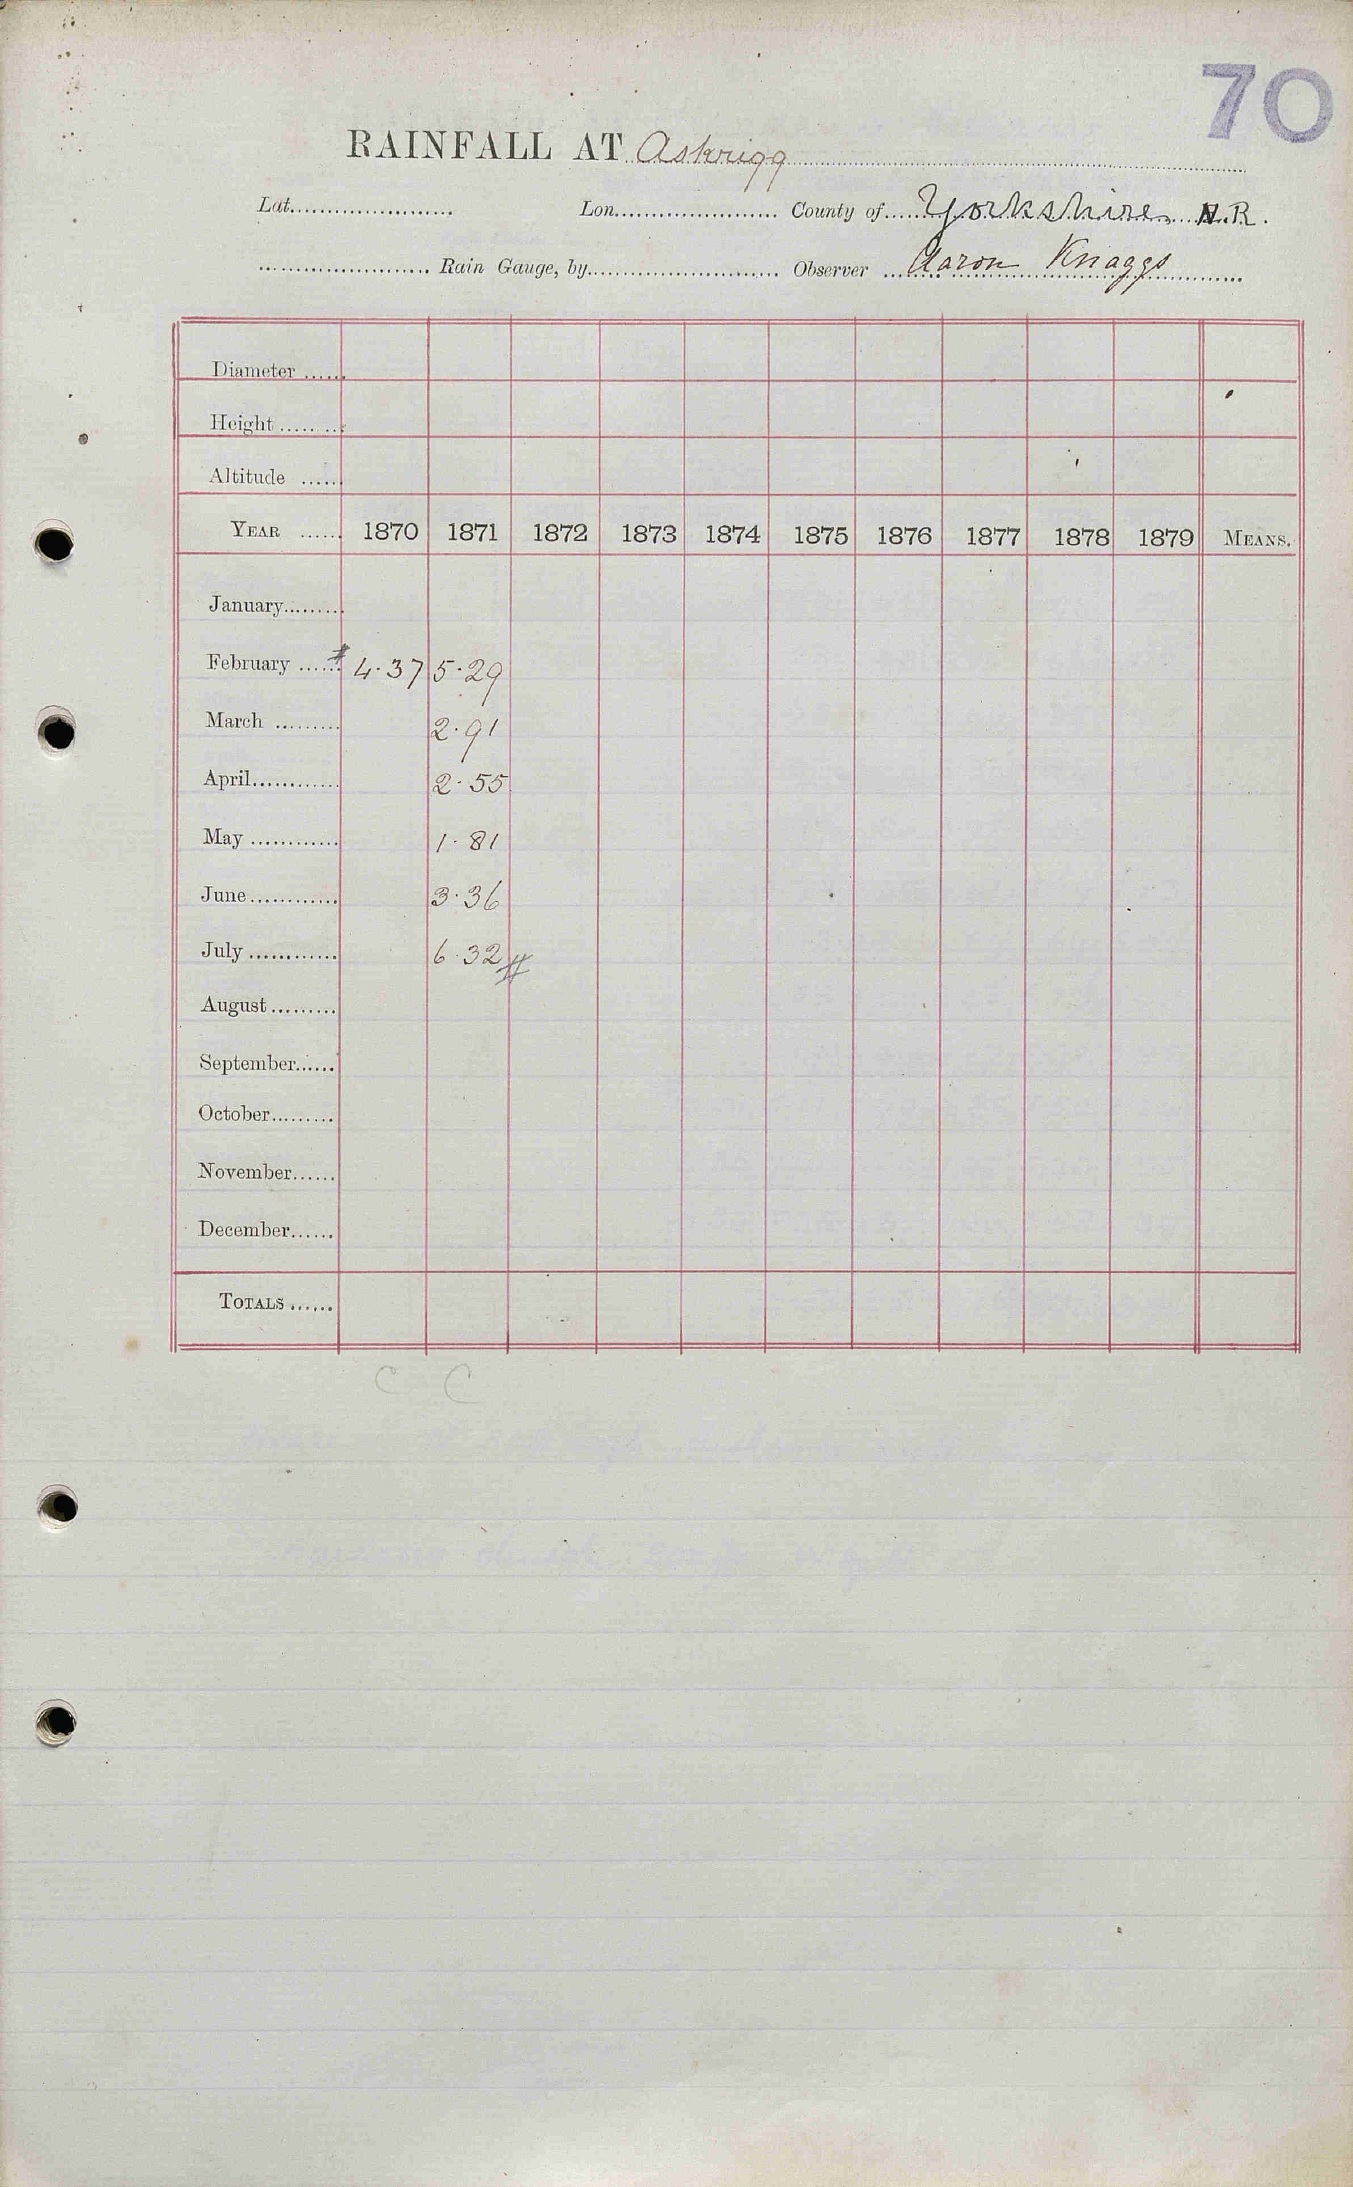 70
RAINFALL AT Askrigg
Lat...................... Lon...................... County of...... Yorkshire N.R.
....................... Rain Gauge, by......................... Observer ...... Aaron Knaggs
Diameter ......
Height .........
Altitude ......
YEAR ...... 1870 1871 1872 1873 1874 1875 1876 1877 1878 1879 MEANS.
January.........
February ...... # 4.37 5.29
March ......... 2.91
April............ 2.55
May ............ 1.81
June............ 3.36
July ............ 6.32 #
August.........
September......
October.........
November......
December......
TOTALS ......
C C